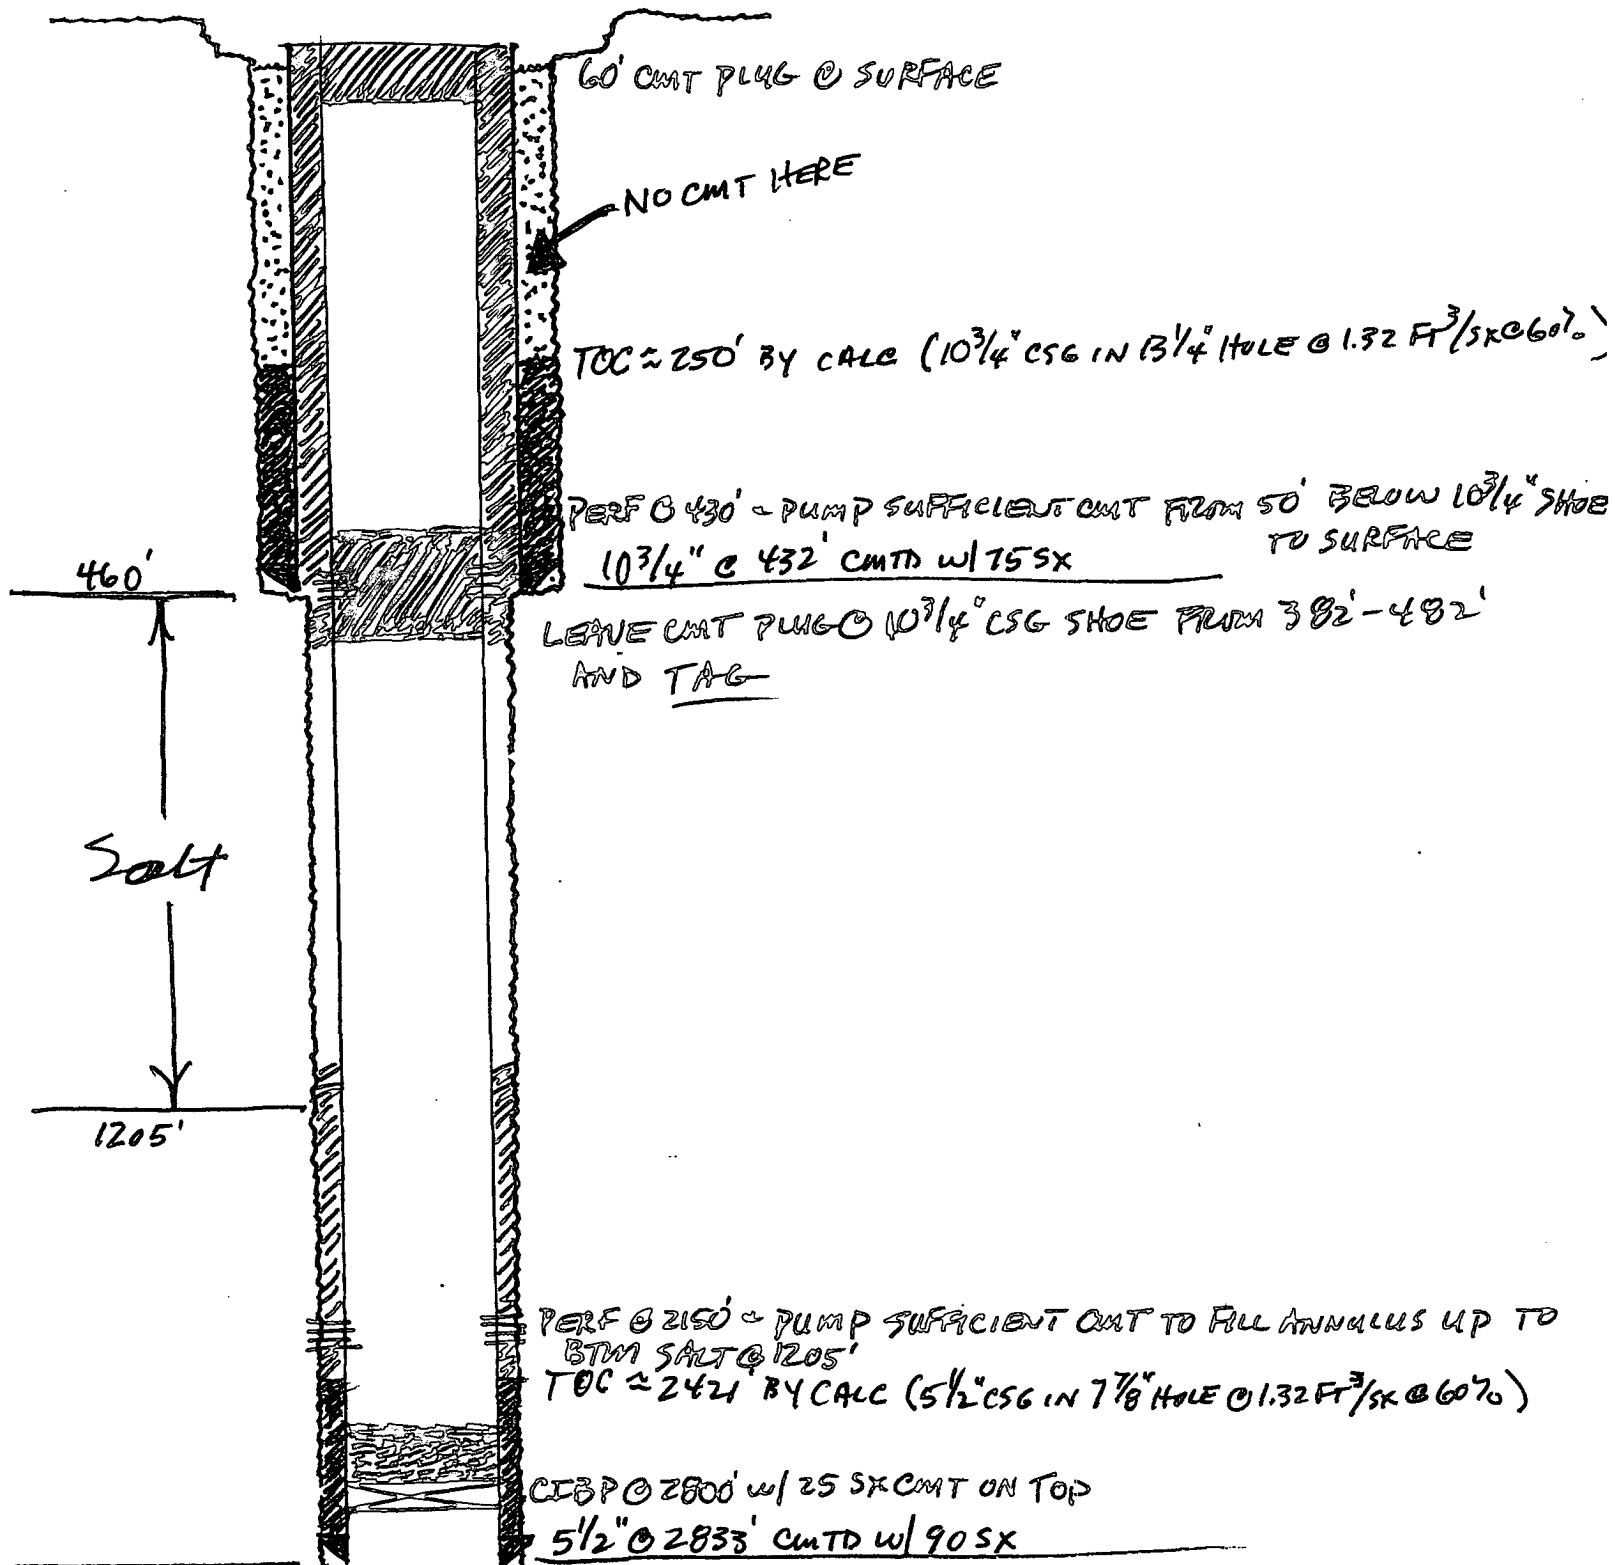 60' CMT PLUG @ SURFACE
NO CMT HERE
TOC ≈ 250' BY CALC (10 3/4" CSG IN 13 1/4" HOLE @ 1.32 FT³/SX @ 60%)
PERF @ 430' - PUMP SUFFICIENT CMT FROM 50' BELOW 10 3/4" SHOE
TO SURFACE
10 3/4" @ 432' CMTD W/ 75 SX
460'
LEAVE CMT PLUG @ 10 3/4" CSG SHOE FROM 382' - 482'
AND TAG
Salt
1205'
PERF @ 2150' - PUMP SUFFICIENT CMT TO FILL ANNULUS UP TO
BTM SALT @ 1205'
TOC ≈ 2421' BY CALC (5 1/2" CSG IN 7 7/8" HOLE @ 1.32 FT³/SX @ 60%)
CIBP @ 2800' W/ 25 SX CMT ON TOP
5 1/2" @ 2833' CMTD W/ 90 SX